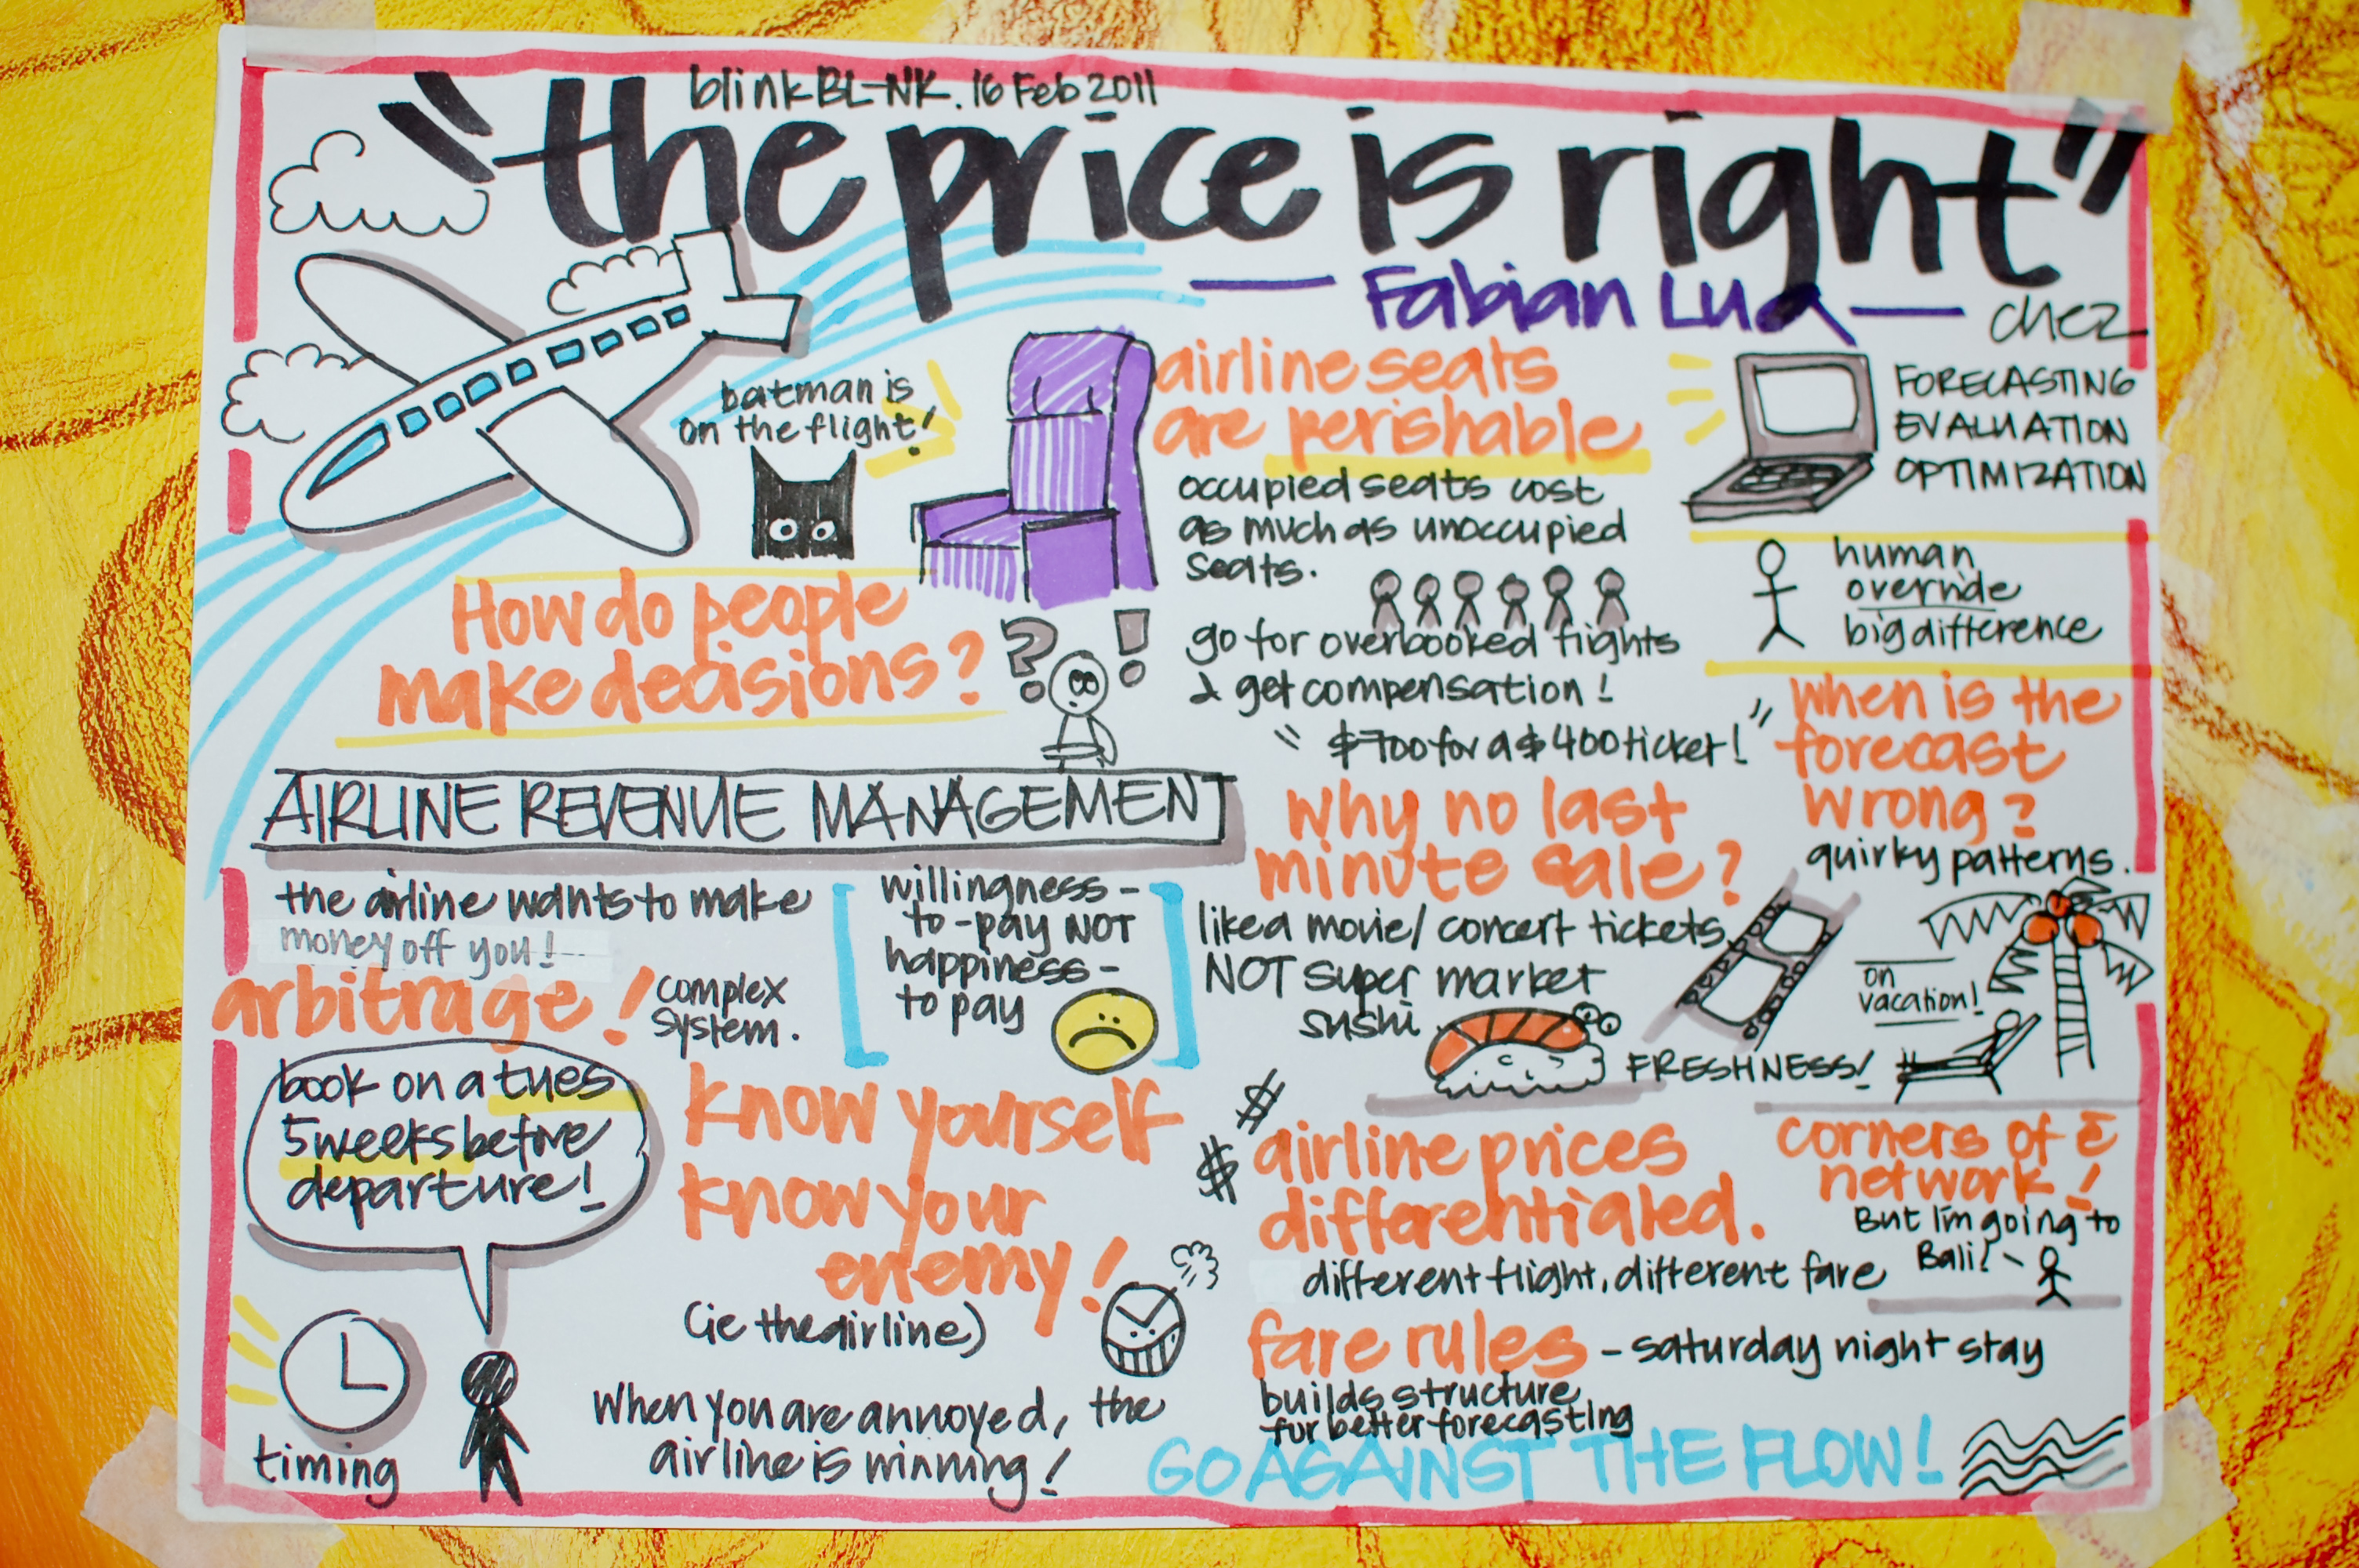 blinkBL-NK. 16 Feb 2011
"the price is right"
— Fabian Lua —
chez
batman is
on the flight!
How do people
make decisions?
? !
AIRLINE REVENUE MANAGEMENT
the airline wants to make
money off you!
arbitrage!
complex
system.
willingness-
to-pay NOT
happiness-
to pay
book on a tues
5 weeks before
departure!
timing
know yourself
know your
enemy!
(ie the airline)
When you are annoyed, the
airline is winning!
airline seats
are perishable
occupied seats cost
as much as unoccupied
seats.
go for overbooked flights
& get compensation!
"$700 for a $400 ticket!"
why no last
minute sale?
like a movie/concert tickets
NOT super market
sushi.
FRESHNESS!
$
$
airline prices
differentiated.
different flight, different fare
fare rules - saturday night stay
builds structure
for better forecasting
GO AGAINST THE FLOW!
FORECASTING
EVALUATION
OPTIMIZATION
human
override
big difference
when is the
forecast
wrong?
quirky patterns.
on
vacation!
corners of ē
network!
But I'm going to
Bali!